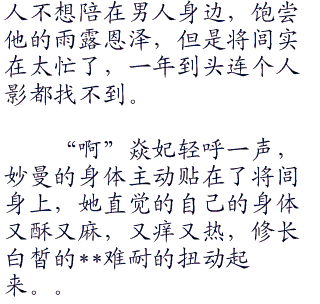 人不想陪在男人身边，饱尝
他的雨露恩泽，但是将闾实
在太忙了，一年到头连个人
影都找不到。
“啊”焱妃轻呼一声，
妙曼的身体主动贴在了将闾
身上，她直觉的自己的身体
又酥又麻，又痒又热，修长
白皙的**难耐的扭动起
来。。